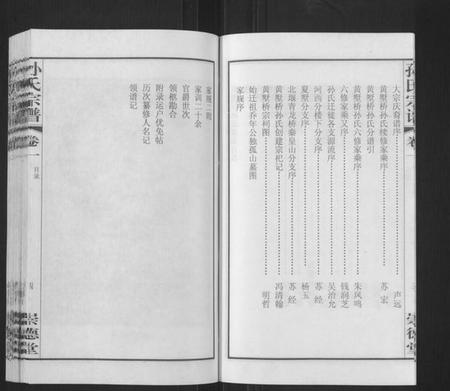 孙氏宗谱 卷一
大宗庆裔谱序……………声远
黄墅桥孙氏楼修家乘序……………苏宏
黄墅桥孙氏分谱引
六修家乘又序……………朱凤鸣
孙氏迁徙各支源流序……………钱润芝
河西分楼下分支序……………吴治允
夏墅分支序……………苏经
北堰青龙桥秦皇山分支序……………杨玉
黄墅桥孙氏创建宗祀记……………苏经
黄墅桥宗祠图……………冯清翰
始迁祖乔年公独孤山墓图……………明哲
家庭序
崇德堂
孙氏宗谱 卷一 目录
家规二则
家训二十余
官爵世次
领柩勘合
附录运户优免帖
历次纂修人名记
领谱记
崇德堂